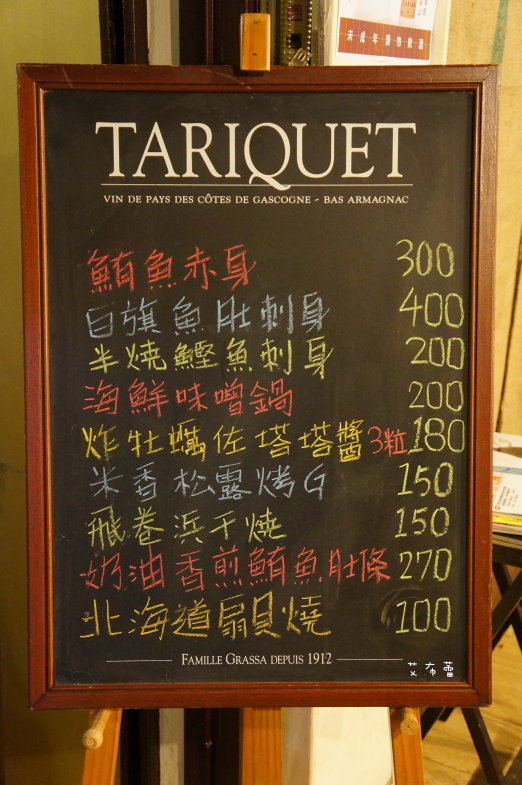 未成年請勿飲酒
TARIQUET
VIN DE PAYS DES CÔTES DE GASCOGNE - BAS ARMAGNAC
鮪魚赤身 300
白旗魚肚刺身 400
半燒鰹魚刺身 200
海鮮味噌鍋 200
炸牡蠣佐塔塔醬 3粒 180
米香松露烤G 150
飛卷浜干燒 150
奶油香煎鮪魚肚條 270
北海道扇貝燒 100
FAMILLE GRASSA DEPUIS 1912
艾布蕾